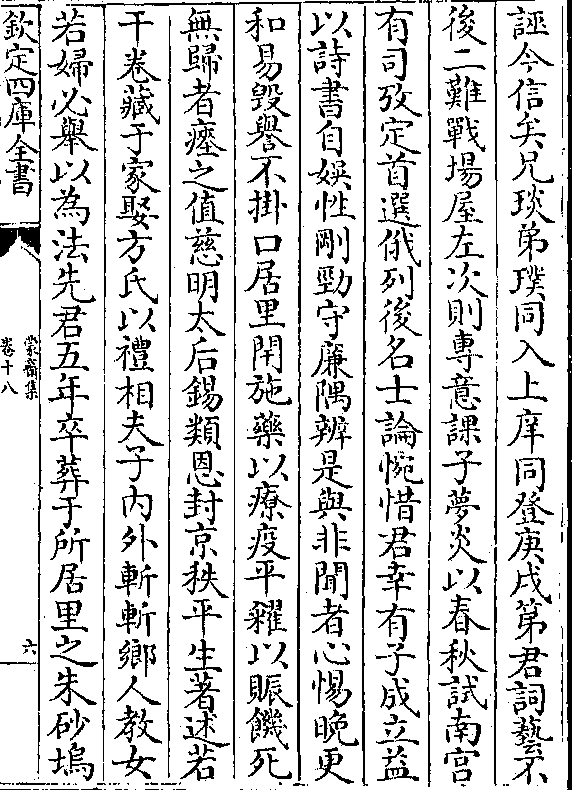 誣今信矣兄琰弟璞同入上庠同登庚戌第君詞藝不
後二難戰場屋左次則專意課子夢炎以春秋試南宫
有司攷定首選俄列後名士論惋惜君幸有子成立益
以詩書自娯性剛勁守廉隅辨是與非聞者心惕晩更
和易毁譽不掛口居里閈施藥以療疫平糴以賑饑死
無歸者瘞之值慈明太后錫類恩封京秩平生著述若
干卷藏于家娶方氏以禮相夫子内外斬斬鄉人教女
若婦必舉以為法先君五年卒葬于所居里之朱砂塢
欽定四庫全書
蒙齋集
卷十八
六